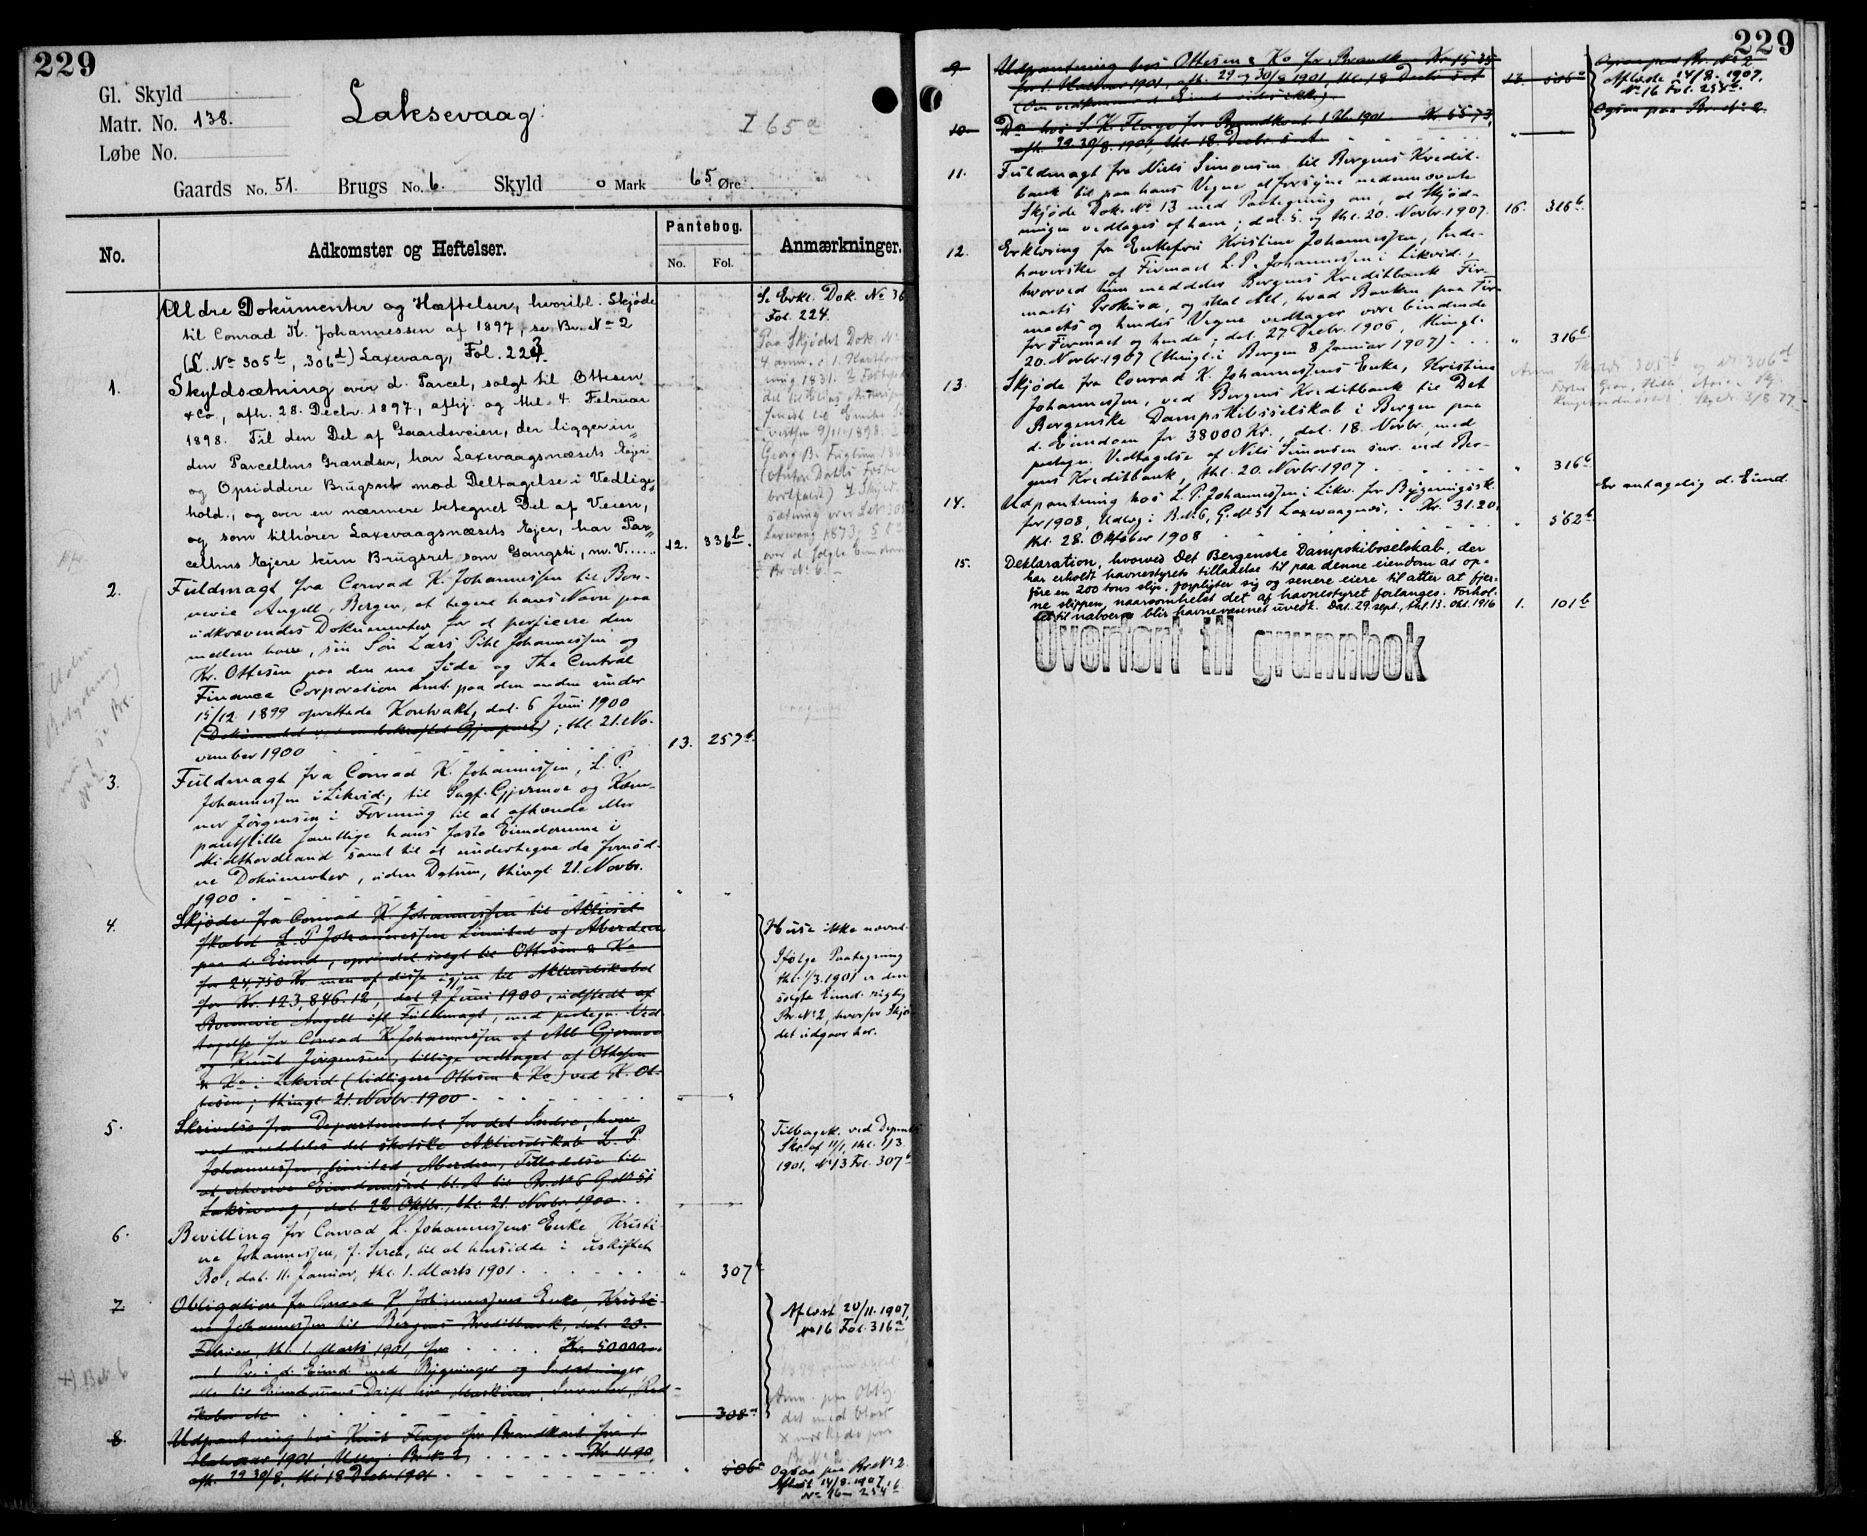 229
Gl. Skyld
Matr. No. 138.
Løbe No.
Laksevaag.
I 65 a
Gaards No. 51. Brugs No. 6. Skyld 0 Mark 65 Øre.
No.
Adkomster og Heftelser.
Pantebog.
No. Fol.
Anmærkninger.
Ældre Dokumenter og Hæftelser, hvoribl. Skjøde
til Conrad K. Johannessen af 1897, se Br. No 2
(L. No 305 b, 306 d) Laxevaag, Fol. 223.
1. Skyldsætning over d. Parcel, solgt til Ottesen
& Co., afh. 28. Decbr. 1897, afhj. og thl. 4. Februar
1898. Til den Del af Gaardsveien, der ligger in-
den Parcellens Grændser, har Laxevaagsnæsets Ejer
og Opsiddere Brugsret mod Deltagelse i Vedlige-
hold, og over en nærmere betegnet Del af Veien,
og som tilhører Laxevaagsnæsets Ejer, har Par-
cellens Ejere kun Brugsret som Gangsti, m. V..... 12. 336 b.
2. Fuldmagt fra Conrad K. Johannessen til Bon-
nevie Angell, Bergen, at tegne hans Navn paa
udkrævendes Dokumenter for at perficere den
mellem ham, sin Søn Lars Pihl Johannessen og
Kr. Ottesen paa den ene Side og The Central
Finance Corporation Lmt. paa den anden under
15/12 1899 oprettede Kontrakt, dat. 6 Juni 1900
(Dokumentet ved en bekræftet Gjenpart); thl. 21. No-
vember 1900 13. 257 b
3. Fuldmagt fra Conrad K. Johannessen, L. P.
Johannessen i Likvid., til Sagf. Gjermoe og Kæm-
ner Jørgensen i Forening til at afhænde eller
pantstille samtlige hans faste Eiendomme i
Midthordland samt til at undertegne de fornød-
ne Dokumenter, uden Datum, thingl. 21. Novbr.
1900
4. Skjøde fra Conrad K. Johannessen til Aktiesel-
skabet L. P. Johannessen Limited af Aberdeen
paa d. Eiend., oprindel. solgt til Ottesen & Ko
for 24,750 Kr. men af disse igjen til Aktieselskabet
for Kr. 123,846.12, dat. 9 Juni 1900, udstedt af
Bonnevie Angell ifl. Fuldmagt, med pategn. Ved-
tagelse for Conrad K. Johannessen af Alb. Gjermoe
og Knut Jørgensen, tillige vedtaget af Ottesen
& Ko i Likvid (tidligere Ottesen & Ko) ved K. Ot-
tesen; thingl. 21. Novbr. 1900
Huse ikke nævnt.
Ifølge Paategning
thl. 1/3. 1901 er den
solgte Eiend. rigtig
Br. No 2, hvorfor Skjø-
det udgaar her.
5. Skrivelse fra Departementet for det Indre, hvor-
ved meddeles det skotske Aktieselskab L. P.
Johannessen, limited, Aberdeen, Tilladelse til
at erhverve Eiendomsret bl. A. til Br. No 6 G. No 51
Laksevaag, dat. 22 Oktbr., thl. 21. Novbr. 1900
Tilbagek. ved Depmts
Skr. af 11/1, thl. 1/3.
1901, No 13 Fol. 307 b
6. Bevilling for Conrad K. Johannessens Enke, Kristi-
ne Johannessen, f. Serch, til at hensidde i uskiftet
Bo, dat. 11. Januar, thl. 1. Marts 1901 307
7. Obligation fra Conrad K. Johannessens Enke, Kristi-
ne Johannessen til Bergens Kreditbank, dat. 23.
Februar, thl. 1. Marts 1901, for Kr. 50000
m. 1 Pr. i d. Eiend. med Bygninger og Indretninger
alle til Eiendommens Drift hør. Maskiner, Inventar, Red-
skaber etc 308 a
Aflæst 20/11. 1907,
No 16 Fol. 316 a
x) Bno. 6
8. Udpantning hos Knut Flage for Brandkont. for 1
Halvaar 1901. Udlæg i Br. No. 2 Kr. 11.90,
afh. 29 30/8, thl. 18 Decbr. 1901 506 a
Ogsaa paa Br. No 2.
Aflæst 14/8. 1907,
No 16 – 254 b
229
9. Udpantning hos Ottesen & Ko for Brandk. Kr. 15.35
for 1. Halvaar 1901, afh. 29 og 30/8 1901, thl. 18 Decbr. s. A. 13. 506 a
Ogsaa paa Br. No 2
Aflæste 14/8. 1907.
No 16 Fol. 254 b.
Ogsaa paa Br. No 2.
10. Do hos S. K. Flage for Brandkont. 1 H. 1901 Kr. 55.73,
afh. 29 30/8. 1901, thl. 18. Decbr. s. A.
11. Fuldmagt fra Niels Simonsen til Bergens Kredit-
bank til paa hans Vegne at forsyne nedennævnte
Skjøde Dok. No 13 med Paategning om, at Skjød-
ningen vedtages af ham; dat. 5. og thl. 20. Novbr. 1907. 16. 316 b.
12. Erklæring fra Enkefru Kristine Johannessen, Inde-
haverske af Firmaet L. P. Johannessen i Likvid.,
hvorved hun meddeler Bergens Kreditbank Fir-
maets Prokura, og skal Alt, hvad Banken paa Fir-
maets og hendes Vegne vedtager være bindende
for Firmaet og hende; dat. 27 Decbr. 1906, thingl.
20. Novbr. 1907 (thingl. i Bergen 8 Januar 1907) 316 b
13. Skjøde fra Conrad K. Johannessens Enke, Kristine
Johannessen, ved Bergens Kreditbank til Det
Bergenske Dampskibsselskab i Bergen paa
d. Eiendom for 38000 Kr., dat. 18. Novbr., med
pategn. Vedtagelse af Niels Simonsen snr. ved Ber-
gens Kreditbank, thl. 20. Novbr. 1907 316 b
14. Udpantning hos L. P. Johannessen i Likv. for Bygningssk.
for 1908, Udlæg i B. No 6, G. No 51 Laxevaagnes, Kr. 31.20,
thl. 28. Oktober 1908 562 b
Er antagelig d. Eiend.
15. Deklaration, hvorved Det Bergenske Dampskibsselskab, der
har erholdt havnestyrets tilladelse til paa denne eiendom at op-
føre en 200 tons slip, forpligter sig og senere eiere til atter at fjer-
ne slippen, naarsomhelst det af havnestyret forlanges. Forhol-
det til naboerne blir havnevæsnet uvedk. Dat. 29. sept., thl. 13. okt. 1916 1. 101 b
Overført til grunnbok